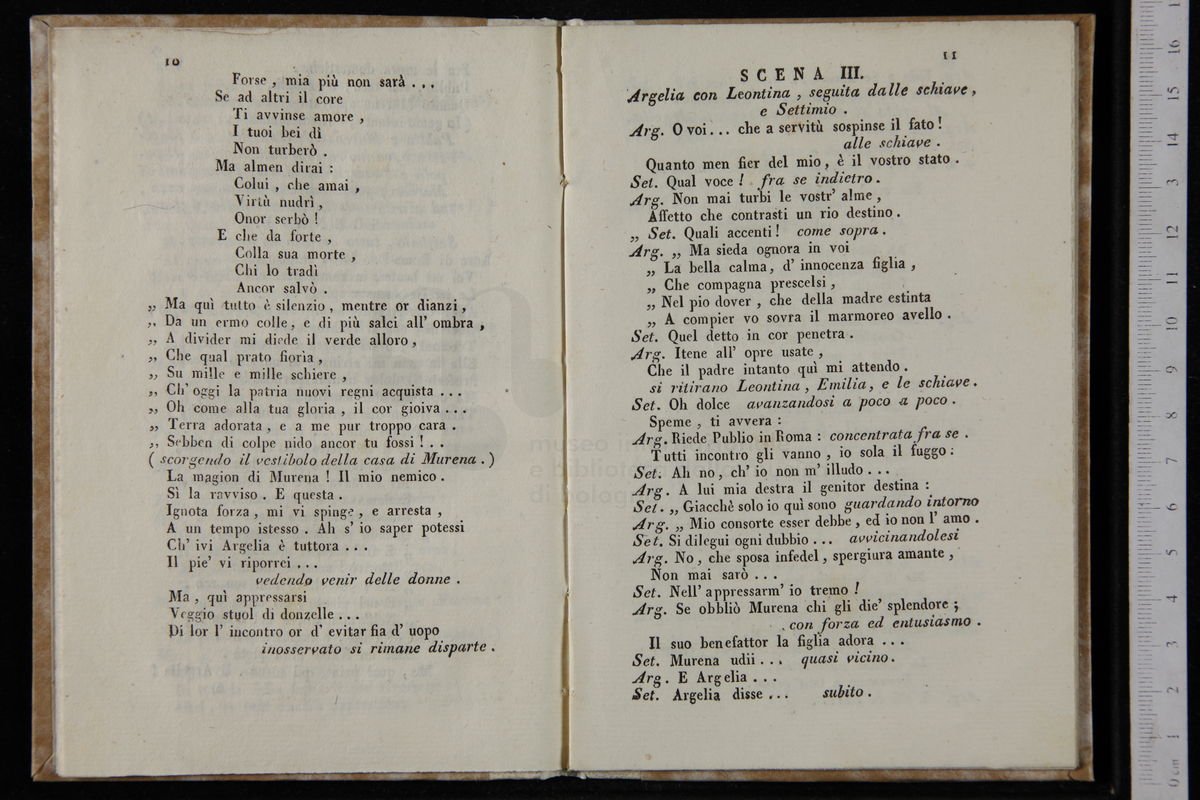 10
Forse , mia più non sarà . . .
Se ad altri il core
Ti avvinse amore ,
I tuoi bei dì
Non turberò .
Ma almen dirai :
Colui , che amai ,
Virtù nudrì ,
Onor serbò !
E che da forte ,
Colla sua morte ,
Chi lo tradì
Ancor salvò .
„ Ma quì tutto è silenzio , mentre or dianzi ,
„ Da un ermo colle , e di più salci all' ombra ,
„ A divider mi diede il verde alloro ,
„ Che qual prato fioria ,
„ Su mille e mille schiere ,
„ Ch' oggi la patria nuovi regni acquista . . .
„ Oh come alla tua gloria , il cor gioiva . . .
„ Terra adorata , e a me pur troppo cara .
„ Sebben di colpe nido ancor tu fossi ! . .
( scorgendo il vestibolo della casa di Murena . )
La magion di Murena ! Il mio nemico .
Sì la ravviso . E questa .
Ignota forza , mi vi spinge , e arresta ,
A un tempo istesso . Ah s' io saper potessi
Ch' ivi Argelia è tuttora . . .
Il pie' vi riporrei . . .
vedendo venir delle donne .
Ma , quì appressarsi
Veggio stuol di donzelle . . .
Di lor l' incontro or d' evitar fia d' uopo
inosservato si rimane disparte .
11
SCENA III.
Argelia con Leontina , seguita dalle schiave ,
e Settimio .
Arg. O voi . . . che a servitù sospinse il fato !
alle schiave .
Quanto men fier del mio , è il vostro stato .
Set. Qual voce ! fra se indietro .
Arg. Non mai turbi le vostr' alme ,
Affetto che contrasti un rio destino .
„ Set. Quali accenti ! come sopra .
Arg. „ Ma sieda ognora in voi
„ La bella calma , d' innocenza figlia ,
„ Che compagna prescelsi ,
„ Nel pio dover , che della madre estinta
„ A compier vo sovra il marmoreo avello .
Set. Quel detto in cor penetra .
Arg. Itene all' opre usate ,
Che il padre intanto quì mi attendo .
si ritirano Leontina , Emilia , e le schiave .
Set. Oh dolce avanzandosi a poco a poco .
Speme , ti avvera :
Arg. Riede Publio in Roma : concentrata fra se .
Tutti incontro gli vanno , io sola il fuggo :
Set. Ah no , ch' io non m' illudo . . .
Arg. A lui mia destra il genitor destina :
Set. „ Giacchè solo io quì sono guardando intorno
Arg. „ Mio consorte esser debbe , ed io non l' amo .
Set. Si dilegui ogni dubbio . . . avvicinandolesi
Arg. No , che sposa infedel , spergiura amante ,
Non mai sarò . . .
Set. Nell' appressarm' io tremo !
Arg. Se obbliò Murena chi gli die' splendore ;
con forza ed entusiasmo .
Il suo benefattor la figlia adora . . .
Set. Murena udii . . . quasi vicino .
Arg. E Argelia . . .
Set. Argelia disse . . . subito .